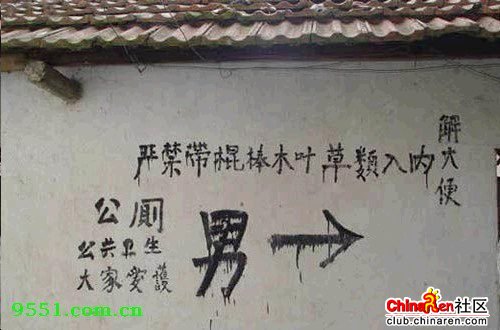 严禁带棍棒木叶草類入内
解大便
公厕
公共卫生
大家爱護
男
9551.com.cn
ChinaRen社区
club.chinaren.com